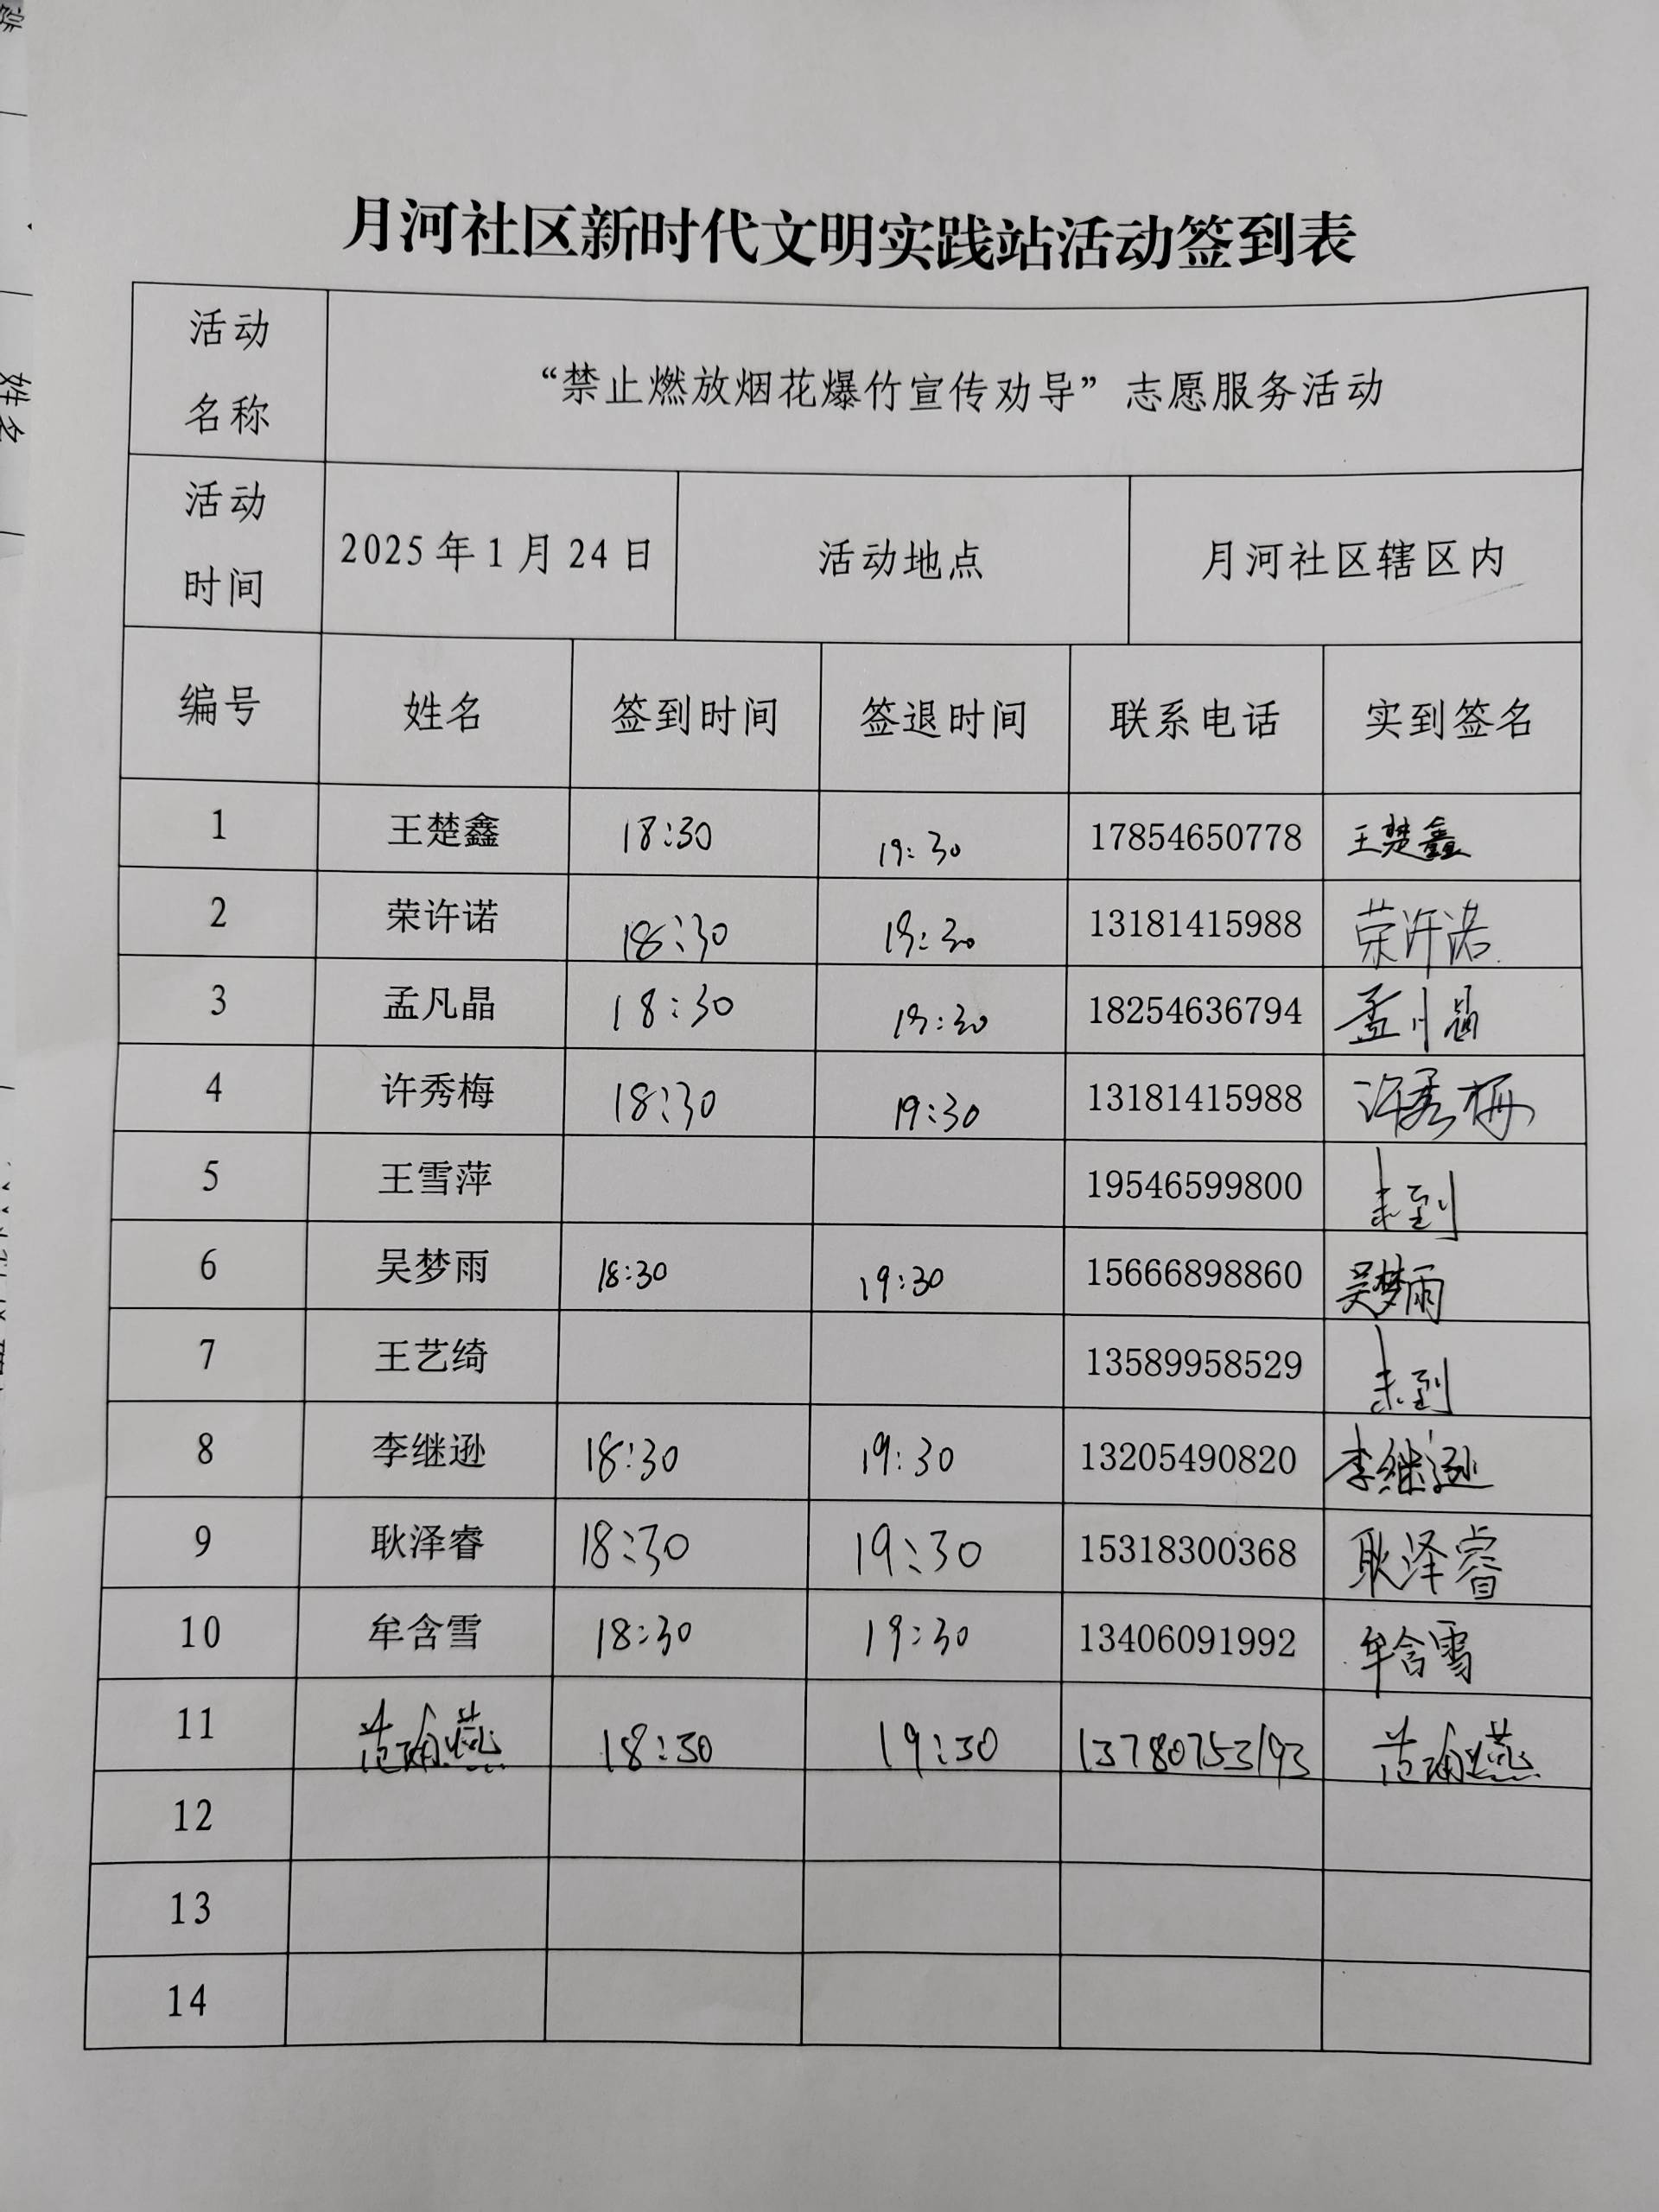 月河社区新时代文明实践站活动签到表
活动名称 “禁止燃放烟花爆竹宣传劝导”志愿服务活动
活动时间 2025年1月24日 活动地点 月河社区辖区内
编号 姓名 签到时间 签退时间 联系电话 实到签名
1 王楚鑫 18:30 19:30 17854650778 王楚鑫
2 荣许诺 18:30 19:30 13181415988 荣许诺
3 孟凡晶 18:30 19:30 18254636794 孟凡晶
4 许秀梅 18:30 19:30 13181415988 许秀梅
5 王雪萍 19546599800 未到
6 吴梦雨 18:30 19:30 15666898860 吴梦雨
7 王艺绮 13589958529 未到
8 李继逊 18:30 19:30 13205490820 李继逊
9 耿泽睿 18:30 19:30 15318300368 耿泽睿
10 牟含雪 18:30 19:30 13406091992 牟含雪
11 18:30 19:30 13780753193
12
13
14
姓名